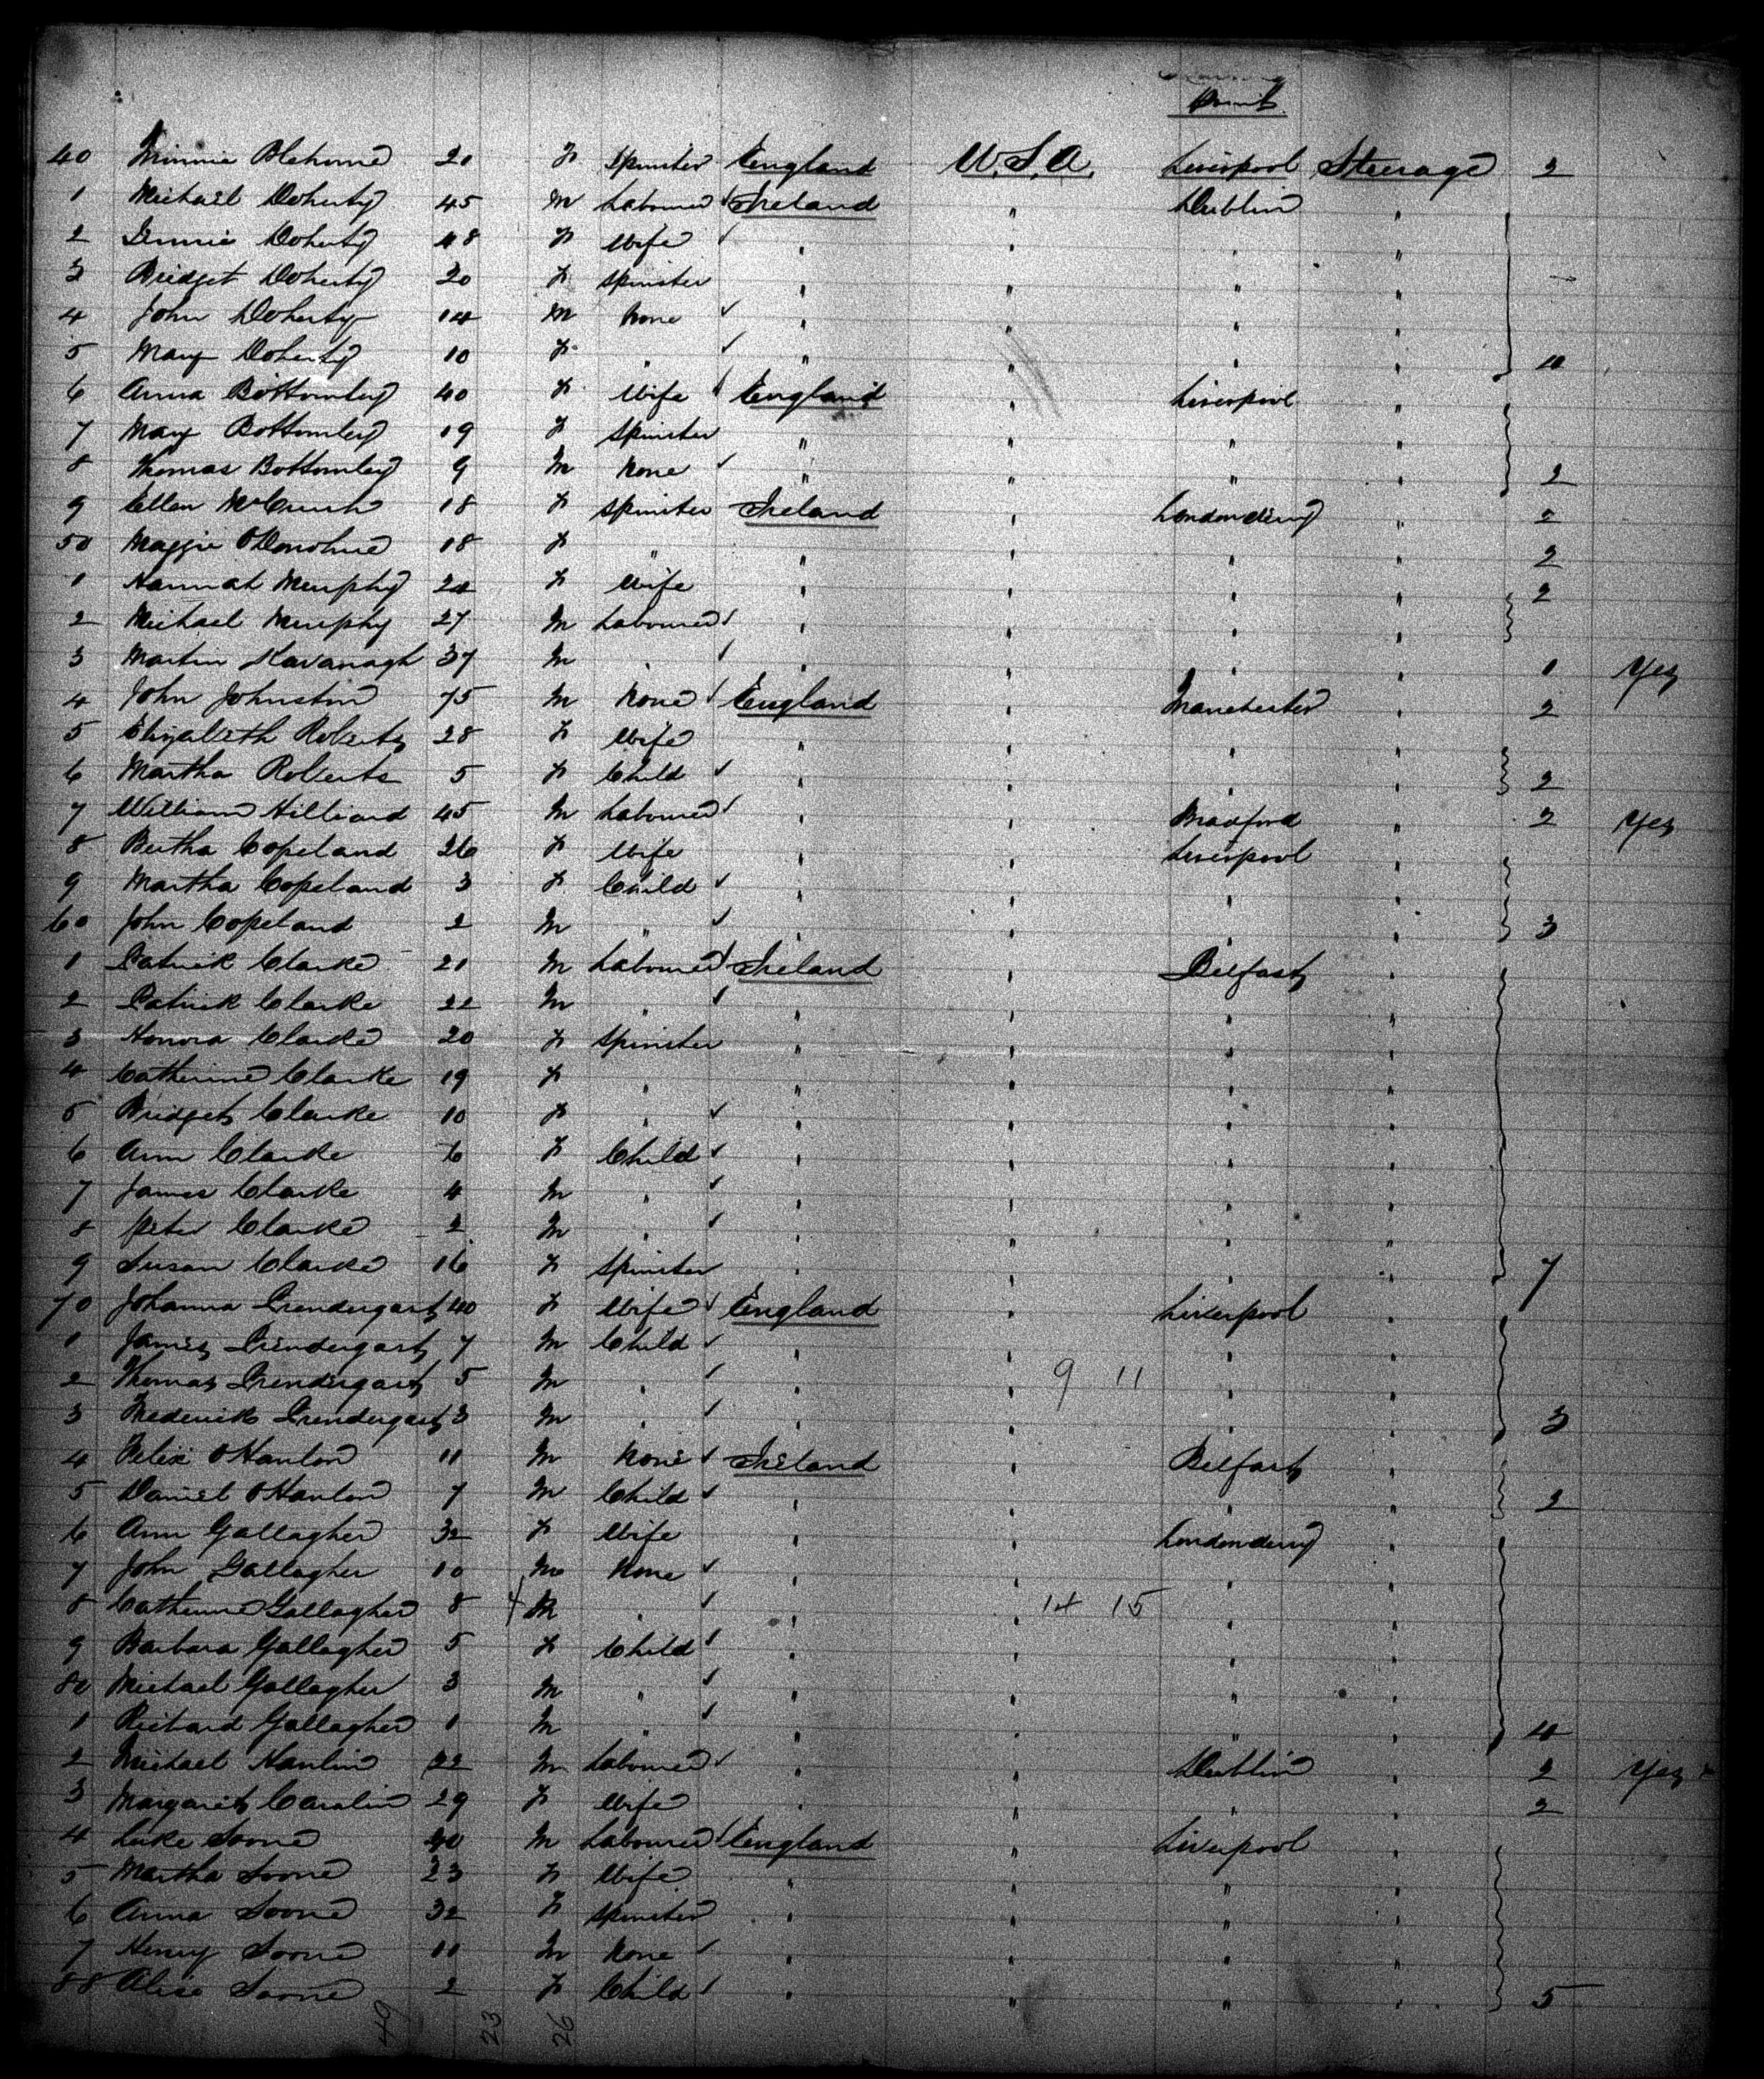 40 Minnie 20 F Spinster England U.S.A. Liverpool Steerage 2
1 Michael Doherty 45 M Labourer Ireland " Dublin "
2 Jennie Doherty 48 F Wife " " " "
3 Bridget Doherty 20 F Spinster " " " "
4 John Doherty 14 M None " " " "
5 Mary Doherty 10 F " " " " " 10
6 Anna Bottomley 40 F Wife England " Liverpool "
7 Mary Bottomley 19 F Spinster " " " "
8 Thomas Bottomley 9 M None " " " " 2
9 Ellen 18 F Spinster Ireland " Londonderry " 2
50 Maggie O'Donohue 18 F " " " " " 2
1 Hannah Murphy 24 F Wife " " " " 2
2 Michael Murphy 27 M Labourer " " " "
3 Martin Kavanagh 37 M " " " " " 1 Yes
4 John Johnston 75 M None England " Manchester " 2
5 Elizabeth Roberts 28 F Wife " " " "
6 Martha Roberts 5 F Child " " " " 2
7 William Hilliard 45 M Labourer " " Bradford " 2 Yes
8 Bertha Copeland 26 F Wife " " Liverpool "
9 Martha Copeland 3 F Child " " " "
60 John Copeland 2 M " " " " " 3
1 Patrick Clarke 21 M Labourer Ireland " Belfast "
2 Patrick Clarke 22 M " " " " "
3 Honora Clarke 20 F Spinster " " " "
4 Catherine Clarke 19 F " " " " "
5 Bridget Clarke 10 F " " " " "
6 Ann Clarke 6 F Child " " " "
7 James Clarke 4 M " " " " "
8 Peter Clarke 2 M " " " " "
9 Susan Clarke 16 F Spinster " " " " 7
70 Johanna Prendergast 40 F Wife England " Liverpool "
1 James Prendergast 7 M Child " " " "
2 Thomas Prendergast 5 M " " " 9 11 " "
3 Frederick Prendergast 3 M " " " " " 3
4 Felix O'Hanlon 11 M None Ireland " Belfast "
5 Daniel O'Hanlon 7 M Child " " " " 2
6 Ann Gallagher 32 F Wife " " Londonderry "
7 John Gallagher 10 M None " " " "
8 Catherine Gallagher 8 M " " " 14 15 " "
9 Barbara Gallagher 5 F Child " " " "
80 Michael Gallagher 3 M " " " " "
1 Richard Gallagher 1 M " " " " " 4
2 Michael Hanlin 22 M Labourer " " Dublin " 2 Yes
3 Margaret Carolin 29 F Wife " " " " 2
4 Luke Soone M Labourer England " Liverpool "
5 Martha Soone 23 F Wife " " " "
6 Anna Soone 32 F Spinster " " " "
7 Henry Soone 11 M None " " " "
88 Alice Soone 2 F Child " " " " 5
49 23 26